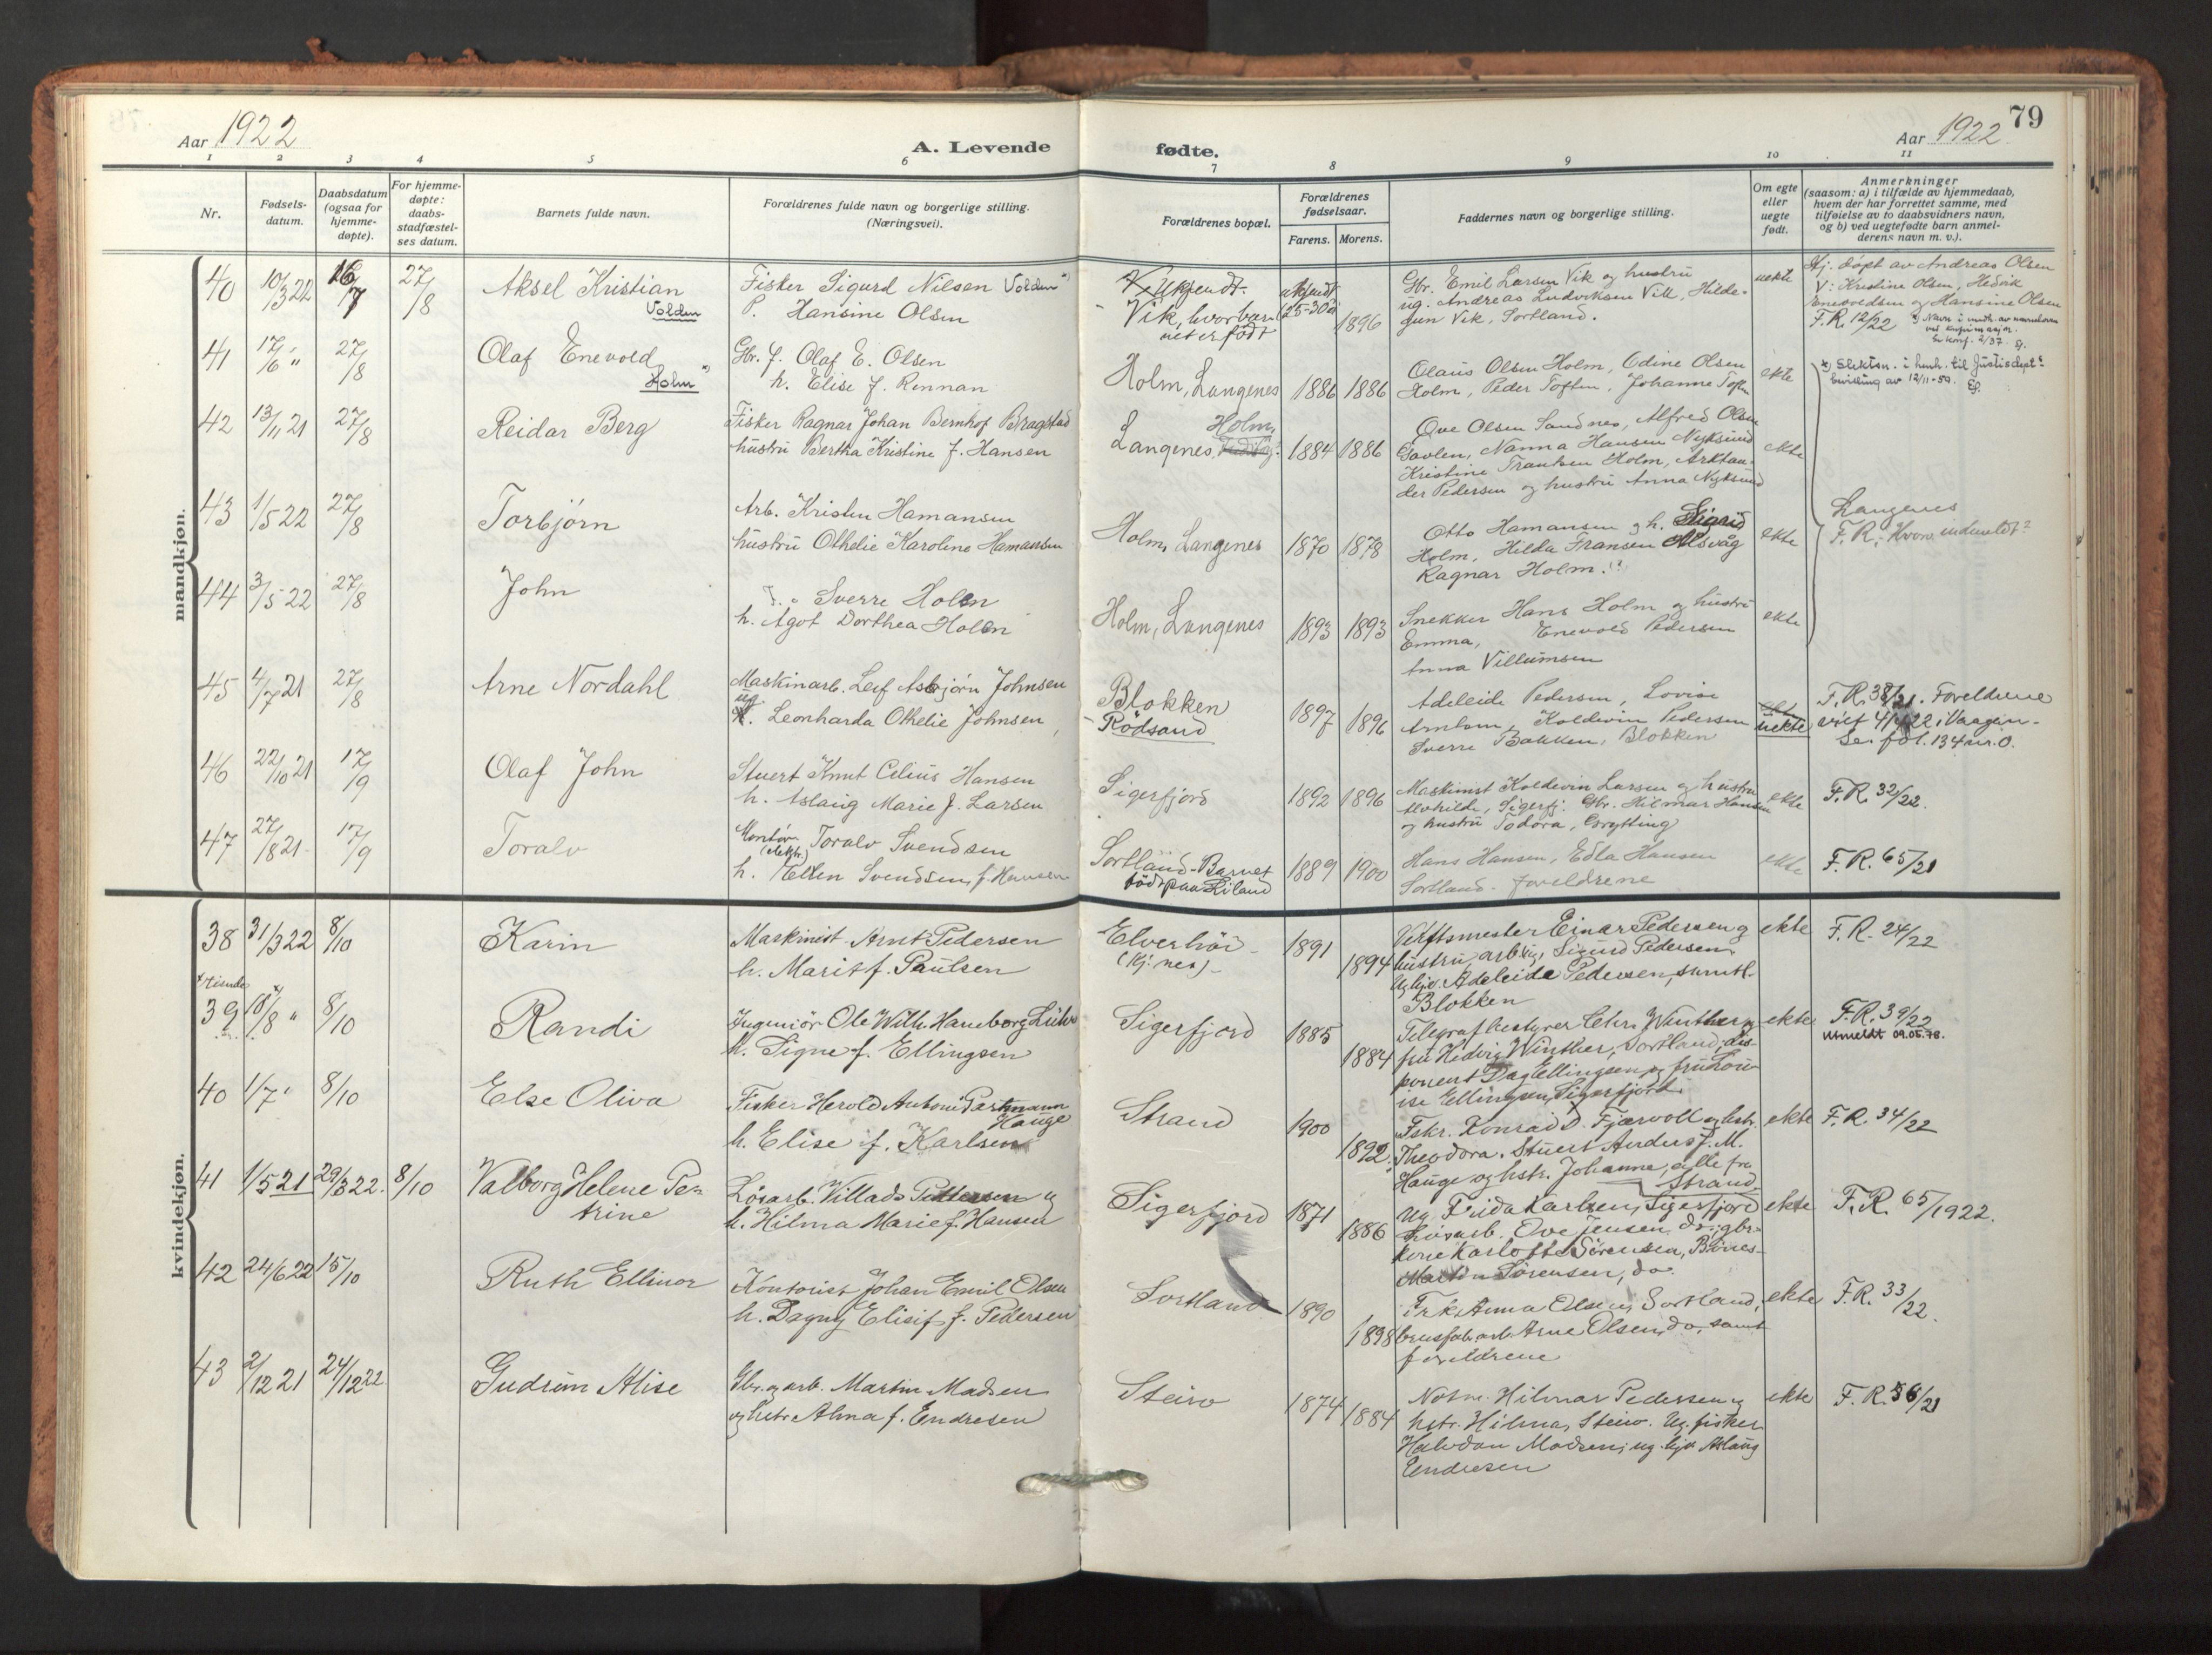 79
Aar 1922
A. Levende
fødte.
Aar 1922
1 2 3 4 5 6 7 8 9 10 11
Nr.
Fødsels-
datum.
Daabsdatum
(ogsaa for
hjemme-
døpte).
For hjemme-
døpte:
daabs-
stadfæstel-
ses datum.
Barnets fulde navn.
Forældrenes fulde navn og borgerlige stilling.
(Næringsvei).
Forældrenes bopæl.
Forældrenes
fødselsaar.
Farens. Morens.
Faddernes navn og borgerlige stilling.
Om egte
eller
uegte
født.
Anmerkninger
(saasom: a) i tilfælde av hjemmedaab,
hvem der har forrettet samme, med
tilføielse av to daabsvidners navn,
og b) ved uegtefødte barn anmel-
derens navn m. v.).
mandkjøn.
40 10/3 22 16/7 27/8
Aksel Kristian
Volden
Fisker Sigurd Nilsen Volden
P. Hansine Olsen
Ukjendt.
Vik, hvor bar-
net er født
ukjendt
25-30 år
1896
Gbr. Emil Larsen Vik og hustru
ug. Andreas Ludviksen Vik, Hilde-
gun Vik, Sortland.
uekte
Hj. døpt av Andreas Olsen
V: Kristine Olsen, Hedvik
Enevoldsen og Hansine Olsen
F.R. 12/22
41 17/6 " 27/8
Olaf Enevold
Holm
Gbr. f. Olaf E. Olsen
h. Elise f. Rennan
Holm, Langenes
1886 1886
Olaus Olsen Holm, Odine Olsen
Holm, Peder Toften, Johanne Toften
ekte
Slektsn. i henh. til Justisdept
bevilling av 12/11-59.
42 13/11 21 27/8
Reidar Berg
Fisker Ragnar Johan Bernhof Bragstad
hustru Bertha Kristine f. Hansen
Holm,
Langenes
1884 1886
Ove Olsen Sandnes, Alfred Olsen
Gavlen, Nanna Hansen Nyksund
Kristine Frantsen Holm,
der Pedersen og hustru Anna Nyksund
ekte
43 1/5 22 27/8
Torbjørn
Arb. Kristen Hamansen
hustru Othelie Karoline Hamansen
Holm, Langenes
1870 1878
Otto Hamansen og h. Sigrid
Holm, Hilda Fransen Alsvåg
Ragnar Holm.
ekte
Langenes
F.R.: Hvor indmeldt?
44 3/5 22 27/8
John
Sverre Holen
h. Agot Dorthea Holen
Holm, Langenes
1893 1893
Snekker Hans Holm og hustru
Emma, Enevold Pedersen
Anna Villumsen
ekte
45 4/7 21 27/8
Arne Nordahl
Maskinarb. Leif Asbjørn Johnsen
ug. Leonharda Othelie Johnsen
Blokken
- Rödsand
1897 1896
Adeleide Pedersen, Lovise
Arntsen, Koldevin Pedersen
Sverre Bakken, Blokken
uekte
F.R. 38/21. Foreldrene
viet 4/1 22 i Vaagan -
Se fol. 134 nr. 0.
46 22/10 21 17/9
Olaf John
Stuert Knut Celius Hansen
h. Aslaug Marie f. Larsen
Sigerfjord
1892 1896
Maskinist Koldevin Larsen og hustru
Sigerfj. Gbr. Hilmar Hansen
og hustru Todora,
ekte
F.R. 32/22.
47 27/8 21 17/9
Toralv
Montør Toralv Svendsen
(elektr.)
h. Ellen Svendsen, f. Hansen
Sortland - Barnet
født paa Liland
1889 1900
Hans Hansen, Edla Hansen
Sortland. foreldrene
ekte
F.R. 65/21
kvindekjøn.
38 31/3 22 8/10
Karin
Maskinist. Arnt Pedersen
h. Marit f. Paulsen
Elverhöi -
(Kj. nes) -
1891
1894
Verftsmester Einar Pedersen og
hustru, arb. ug. Sigurd Pedersen,
ug. kjv. Adeleide Pedersen, samtl.
Blokken
ekte
F.R. 24/22
tiende
39 10/8 " 8/10
Randi
Ingeniör Ole Wilh. Hansborg Lühr
h. Signe f. Ellingsen
Sigerfjord
1885
1884
Telegrafbestyrer Chr. Winther og
fru Hedvig Winther, Sortland; dis-
ponent Dag Ellingsen og fru Lou-
ise Ellingsen, Sigerfjord.
ekte
F.R. 39/22
Utmeldt 09.05.78.
40 1/7 " 8/10
Else Oliva
Fisker Herold Antoni Partmann
Hauge
h. Elise f. Karlsen
Strand
1900
1892.
Fskr. Konrad D. Fjærvoll og hstr.
Theodora. Stuert Anders J. M.
Hauge og hstr. Johanne, alle fra
Strand.
ekte
F.R. 34/22
41 1/5 21 29/3 22. 8/10
Valborg Helene Pe-
trine
Lösarb. Villads Pettersen og
h. Hilma Marie f. Hansen
Sigerfjord
1871
1886
Ug. Frida Karlsen, Sigerfjord
Lösarb. Ove Jensen, do; gbr-
kone Karlotte Sörensen, Blokken
Martin Sörensen, do.
ekte
F.R. 65/1922.
42 24/6 22 15/10
Ruth Ellinor
Kontorist Johan Emil Olsen
h. Dagny Elisif f. Pedersen
Sortland
1890
1898
Frk. Anna Olsen, Sortland;
brusfab. arb. Arne Olsen, do, samt
foreldrene
ekte
F.R. 33/22.
43 2/12 21 24/12 22
Gudrun Alise
Gbr. og arb. Martin Madsen
og hstr. Alma f. Endresen
Steiro
1874 1884
Notm. Hilmar Pedersen og
hstr. Hilma, Steiro. Ug. fisker
Halvdan Madsen; ug. kjv. Aslaug
Endresen
ekte
F.R. 56/21